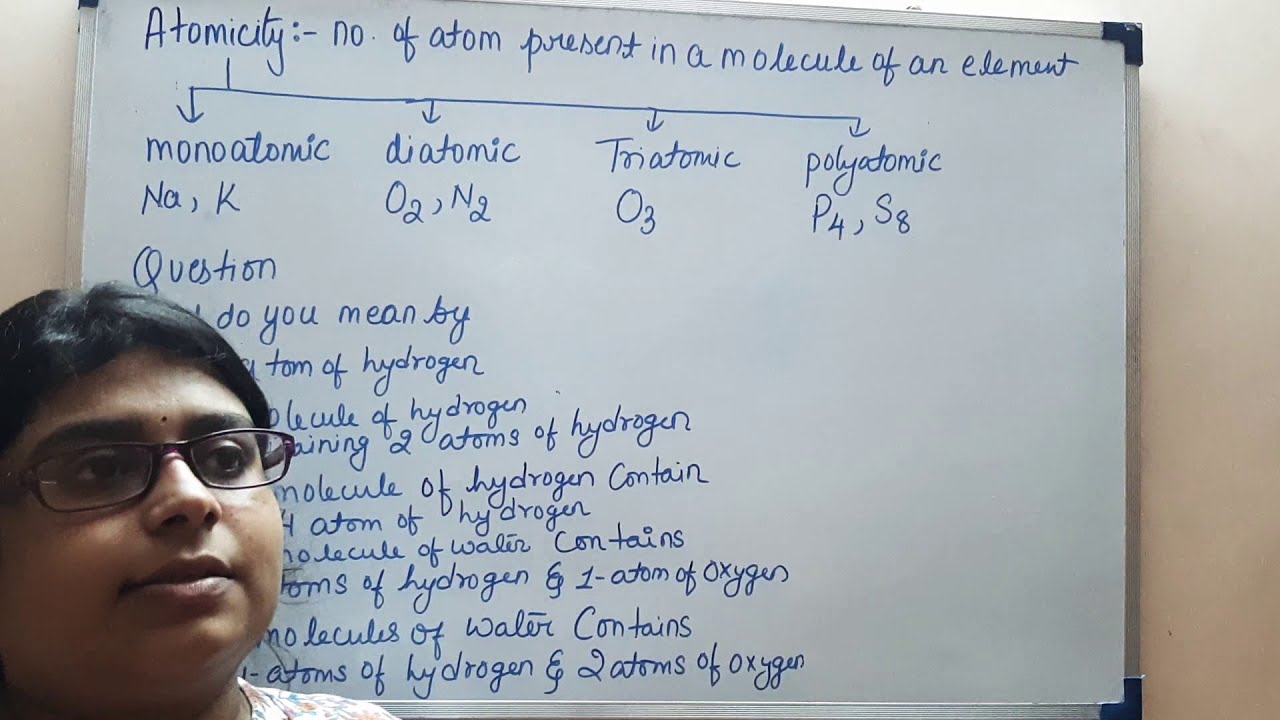 Atomicity:- no. of atom present in a molecule of an element
monoatomic diatomic Triatomic polyatomic
Na, K O2, N2 O3 P4, S8
Question
do you mean by
tom of hydrogen
olecule of hydrogen
aining 2 atoms of hydrogen
molecule of hydrogen Contain
4 atom of hydrogen
molecule of water Contains
toms of hydrogen & 1-atom of oxygen
molecules of water Contains
-atoms of hydrogen & 2 atoms of oxygen